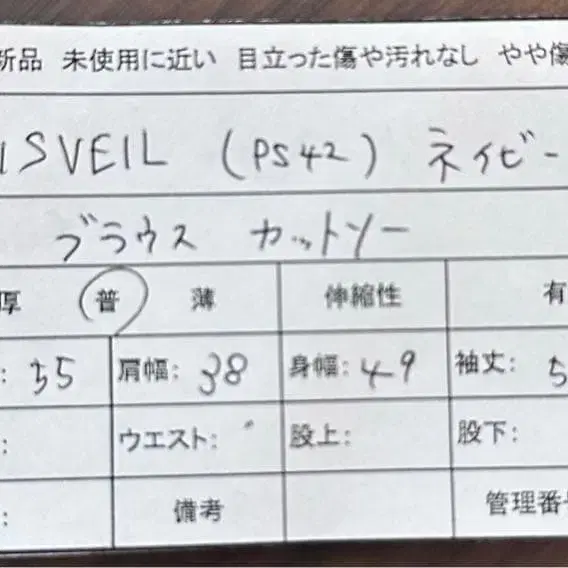 新品 未使用に近い 目立った傷や汚れなし やや傷
ISVEIL (PS42) ネイビー
ブラウス カットソー
厚 普 薄 伸縮性 有
: 55 肩幅: 38 身幅: 49 袖丈: 5
: ウエスト: 股上: 股下:
: 備考 管理番号